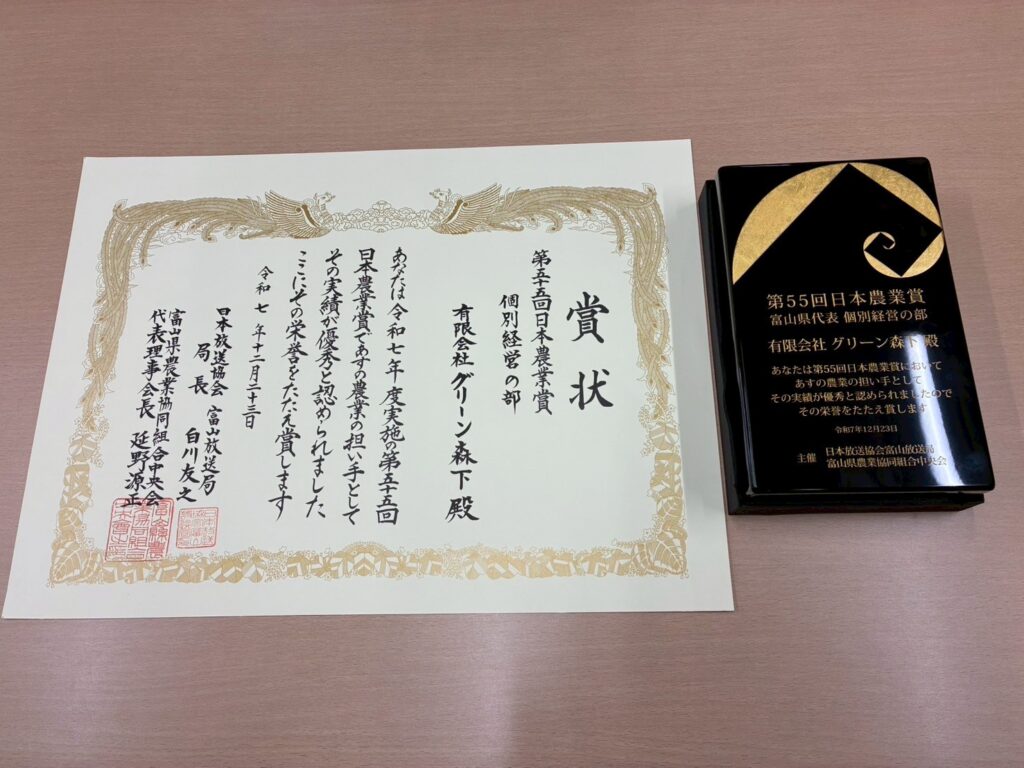 賞状
第五十五回日本農業賞
個別経営の部
有限会社 グリーン森下 殿
あなたは令和七年度実施の第五十五回
日本農業賞であすの農業の担い手として
その実績が優秀と認められました
ここにその栄誉をたたえ賞します
令和七年十二月二十三日
日本放送協会 富山放送局
局長 白川友之
富山県農業協同組合中央会
代表理事会長 延野源正
第55回日本農業賞
富山県代表 個別経営の部
有限会社 グリーン森下 殿
あなたは第55回日本農業賞において
あすの農業の担い手として
その実績が優秀と認められましたので
その栄誉をたたえ賞します
令和7年12月23日
主催 日本放送協会富山放送局
富山県農業協同組合中央会